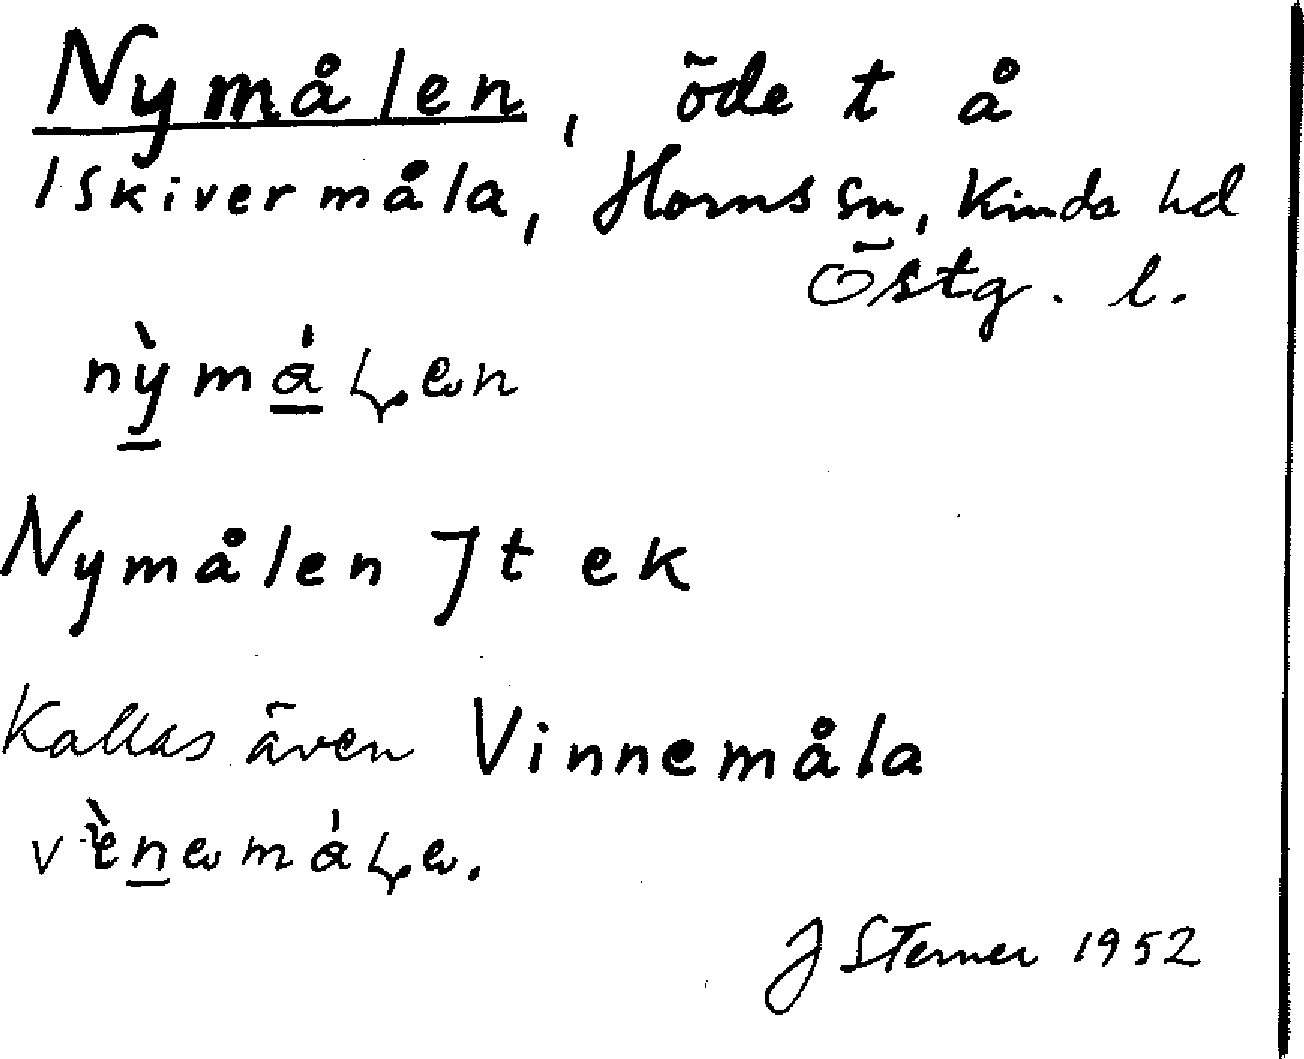 Nymålen, öde t å
Iskivermåla, Horns sn, Kinda hd
Östg. l.
Nymålen Jt ek
Kallas även Vinnemåla
J Sterner 1952